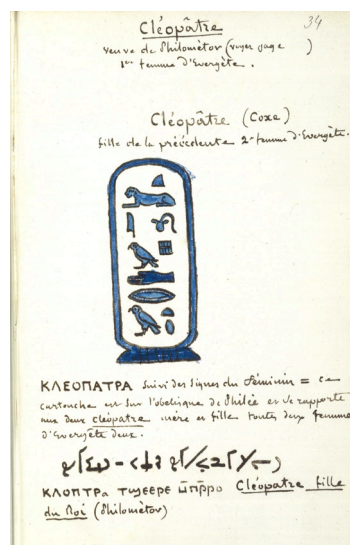 34
Cléopâtre
veuve de Philométor (voyez page )
1ère femme d'Evergète.
Cléopâtre (Coxe)
fille de la précédente 2e femme d'Evergète.
ΚΛΕΟΠΑΤΡΑ suivi des signes du féminin = ce
cartouche est sur l'obélisque de Philée et se rapporte
aux deux cléopatre mère et fille toutes deux femmes
d'Evergète deux.
ΚΛΟΠΤΡα τϣεερε ⲙ̄ⲡⲣ̄ⲣⲟ Cléopâtre fille
du Roi (Philométor)